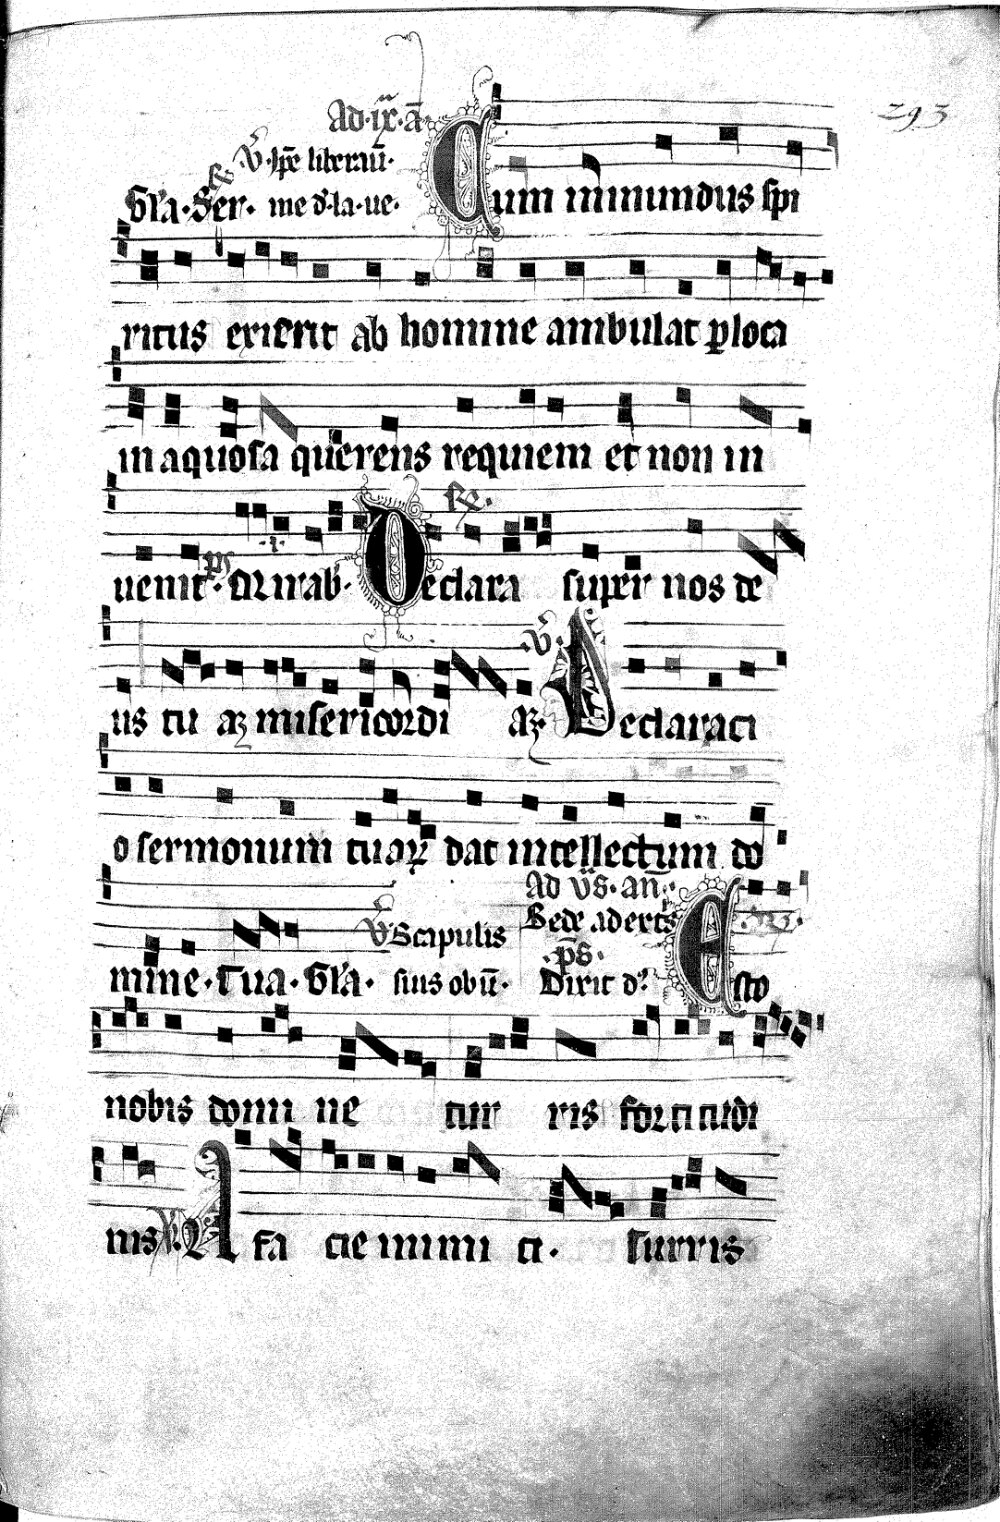 293
Ad·ix·ā
℣·Ip̄e liberaū·
Gl'a·Ser· me d'·la·ue· Cum inmundus spi
ritus exierit ab homine ambulat ꝑ loca
in aquosa querens requiem et non in
uenit· ps̄ Mirab· Declara super nos de
us tu aꝫ misericordi aꝫ· ℣· Declaraci
o sermonum tuoꝝ dat intellectum do
Ad v̄s· an̄·
℣ Scapulis Sede a dextꝭ
p̄s·
mine· Tua· Gl'a· suis obū· Dixit d'· Esto
nobis domi ne tur ris fortitudi
nis ℣· A fa cie inimi ci· turris